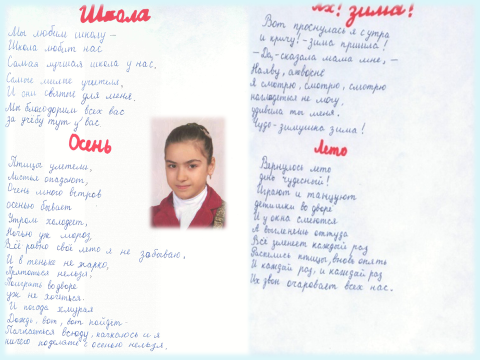 Школа
Мы любим школу –
Школа любит нас
Самая лучшая школа у нас.
Самые милые учителя,
И они святые для меня.
Мы благодарим всех вас
за учёбу тут у вас.
Осень
Птицы улетели,
Листья опадают,
Очень много ветров
осенью бывает
Утром холодет,
Ночью уж мороз,
Всё равно своё лето я не забываю,
И в теньке не жарко,
нельзя.
Поиграть во дворе
уж не хочеться.
И погода хмурая
Дождь вот, вот пойдёт.
всюду, и я
ничего поделать с осенью нельзя.
Ах! зима!
Вот проснулась я с утра
и кричу! - зима пришла!
– Да, - сказала мама мне, –
Наяву, а
Я смотрю, смотрю, смотрю
наглядеться не могу,
удивила ты меня.
Чудо-зимушка зима!
Лето
Вернулось лето
день чудесный!
Играют и танцуют
детишки во дворе
И у окна смеются
А оттуда
Всё зеленеет каждый раз
птицы, вновь опять
И каждый раз, и каждый раз
Их звон очаровает всех нас.